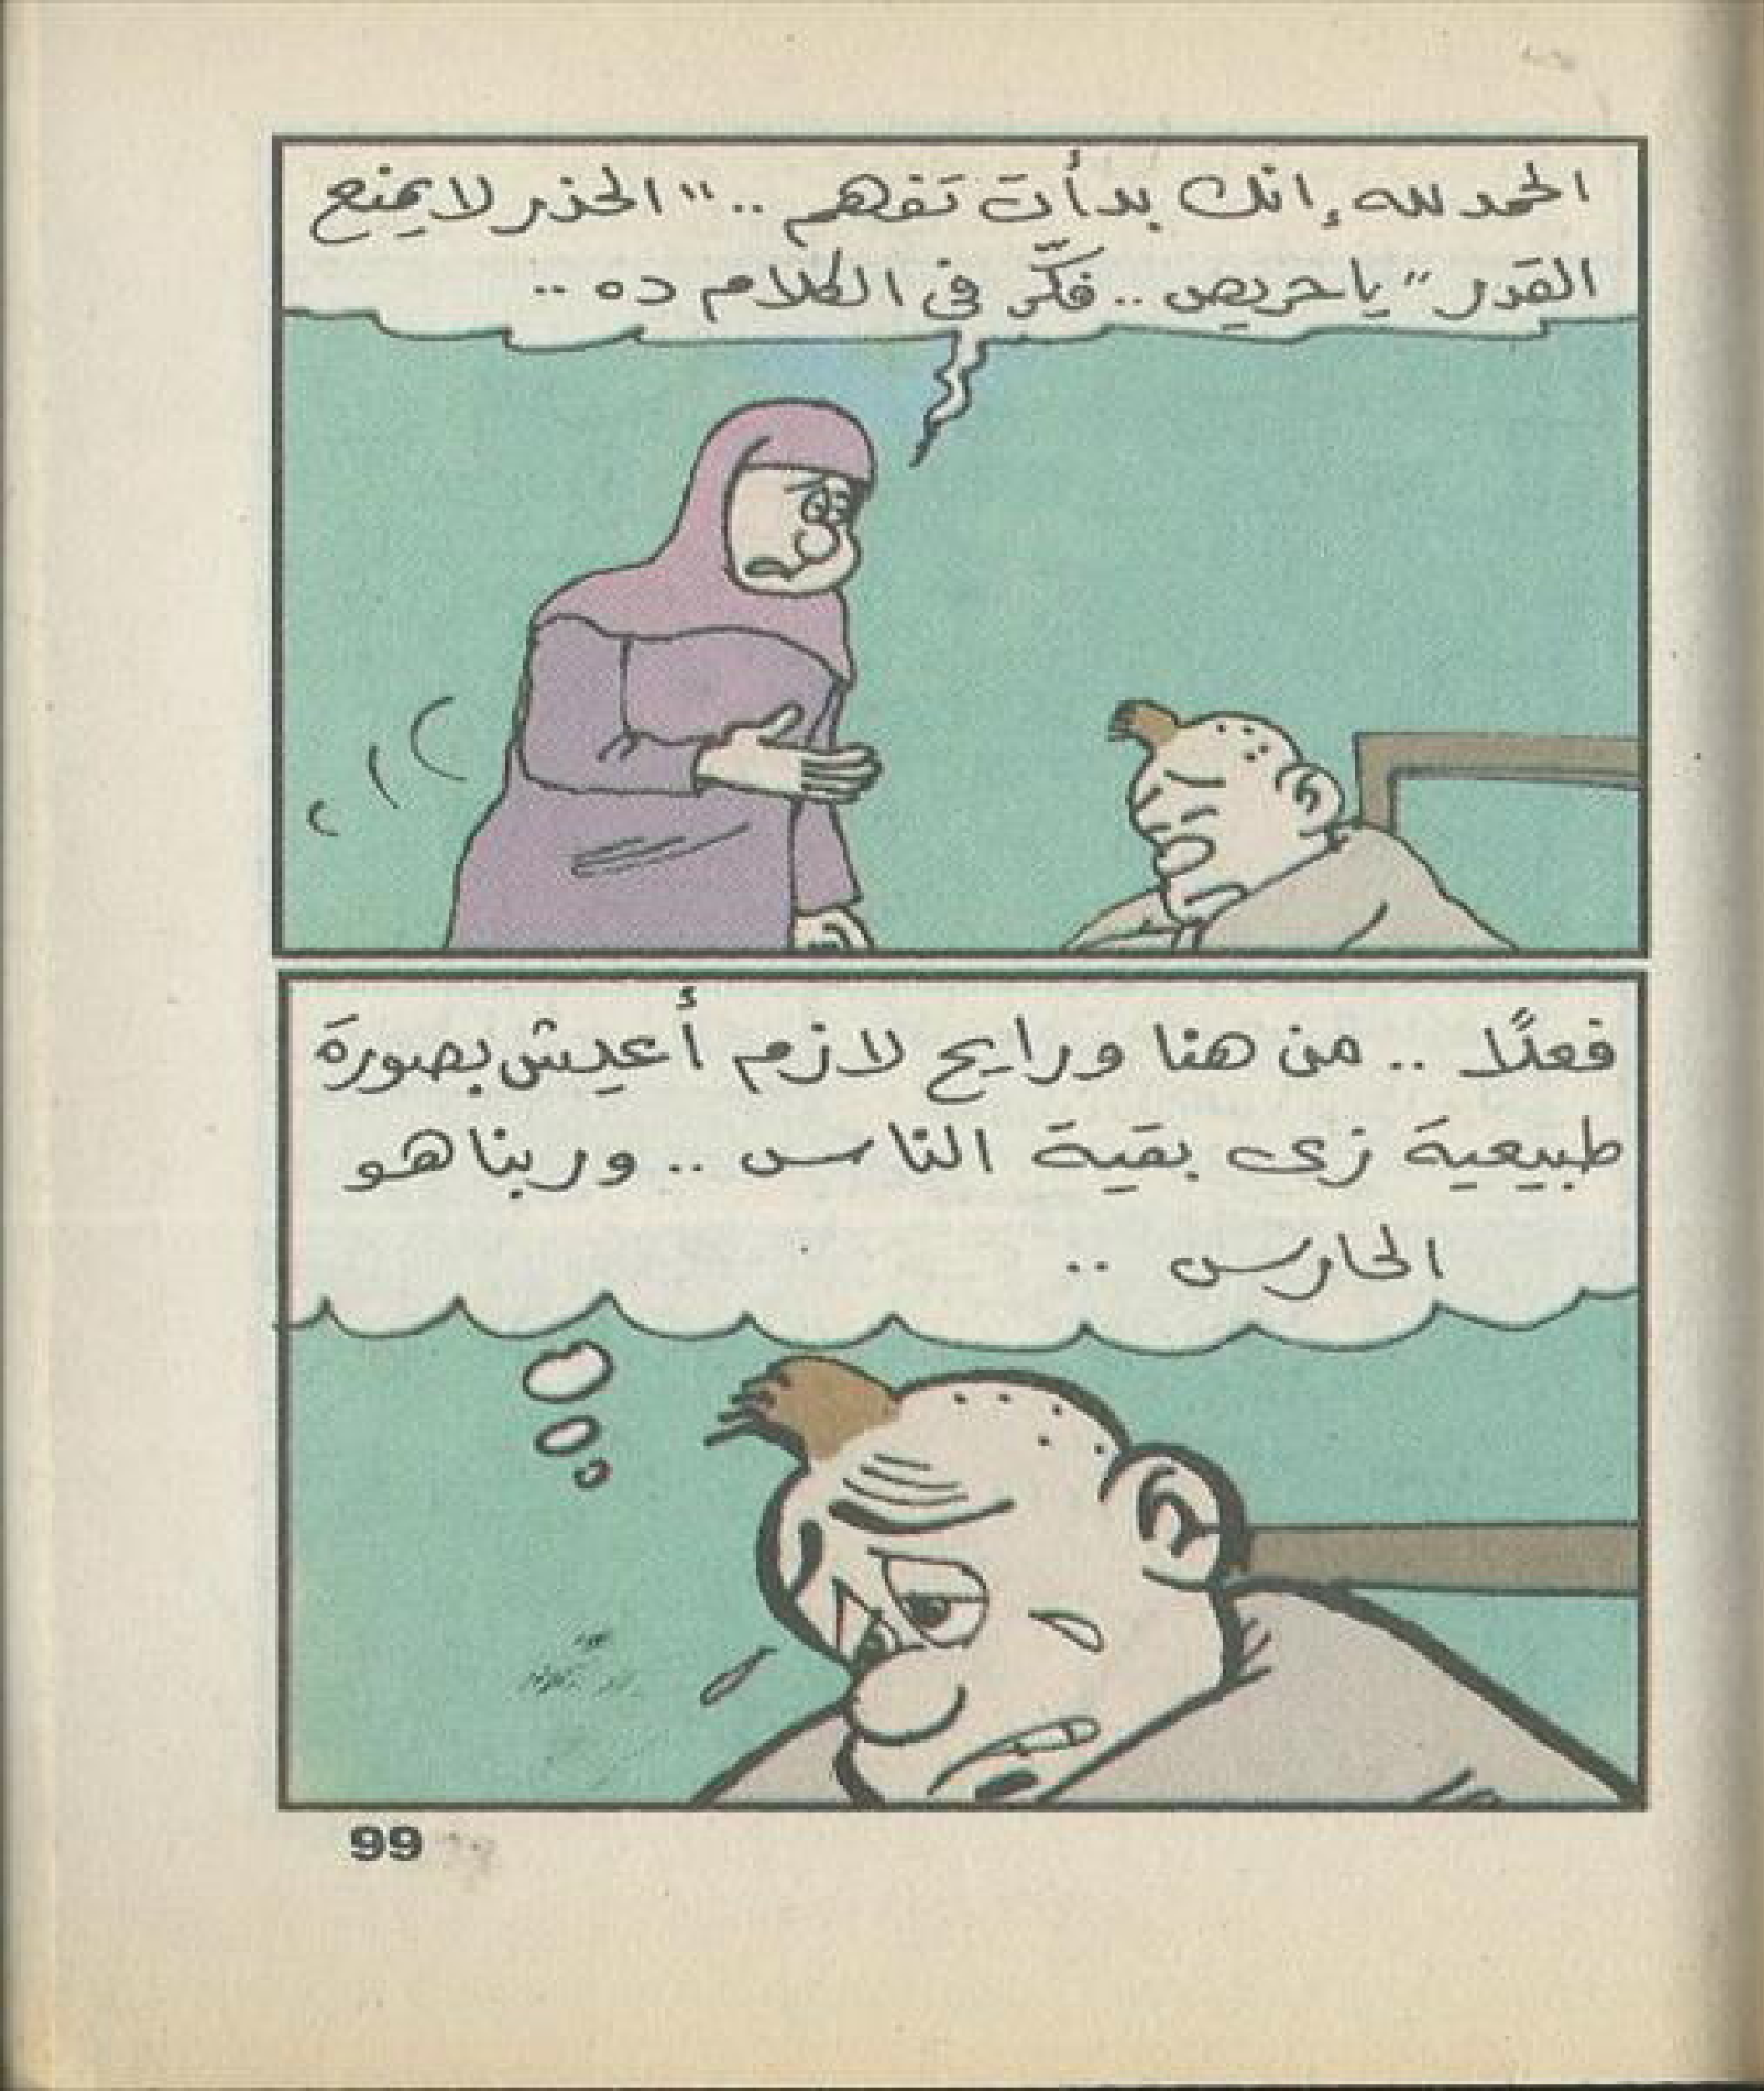 الحمد لله إنك بدأت تفهم .. "الحذر لا يمنع
القدر" يا حريص .. فكّر فى الكلام ده ..
فعلًا .. من هنا ورايح لازم أعيش بصورة
طبيعية زى بقية الناس .. وربنا هو
الحارس ..
99